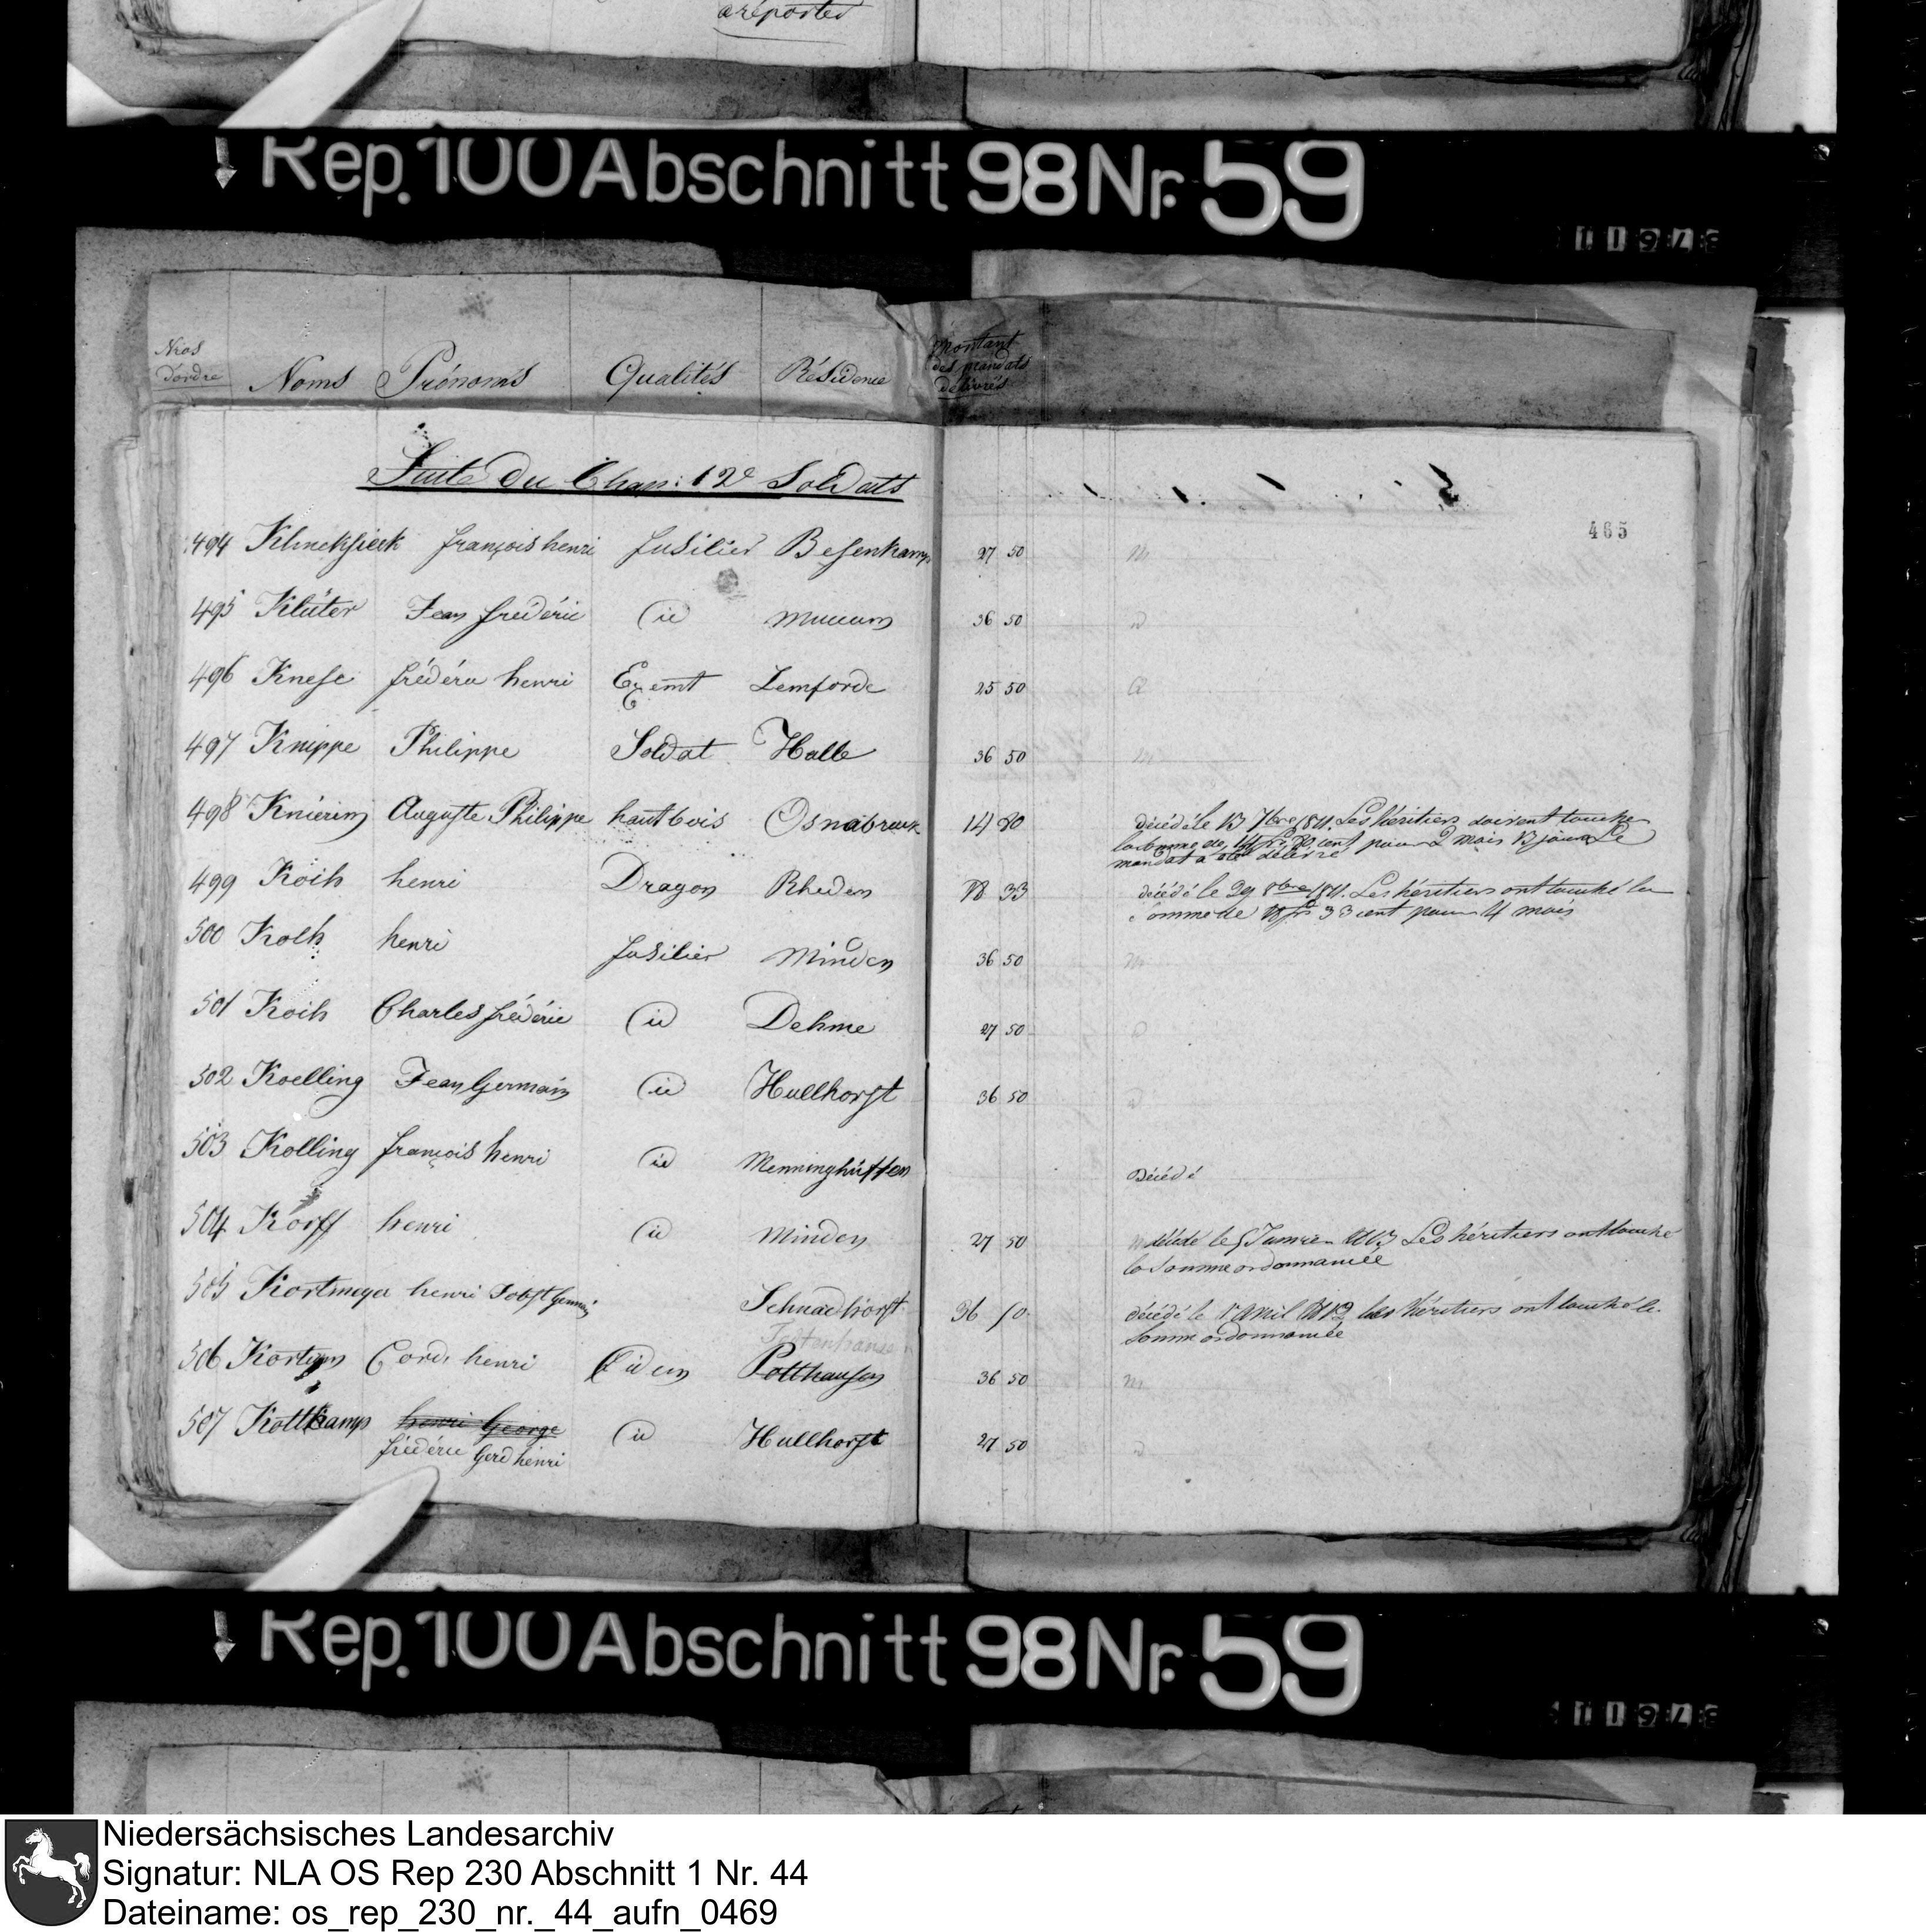 a reporter
Rep. 100 Abschnitt 98 Nr. 59
Nros d'ordre Noms Prénoms Qualités Résidence Montant des mandats délivrés
Suite du Chap: 12e Soldats
465
494 Klincksieck françois henri fusilier Besenkamp 27 50
495 Klüter Jean frédéric id 36 50
496 Knese frédéric henri Exemt Lemforde 25 50
497 Knippe Philippe Soldat Halle 36 50
498 Knierim Auguste Philippe hautbois Osnabruck 14 80 décédé le 13 7bre 1811. Les héritiers doivent toucher
la somme de 14 fr. 80 cent pour 2 mois 13 jours Le
mandat a été délivré
499 Koch henri Dragon Rheden 18 33 décédé le 29 8bre 1811. Les héritiers ont touché la
somme de 18 fr 33 cent pour 4 mois
500 Kolk henri fusilier Minden 36 50
501 Koch Charles frédéric id Dehme 27 50
502 Koelling Jean Germain id Hullhorst 36 50
503 Kolling françois henri id Menninghüffen Décédé
504 Korff henri id Minden 27 50 décédé le 5 Janvier 1813 Les héritiers ont touché
la somme ordonnancée
505 Kortmeyer henri Jobst Germain Schnadhorst 36 50 décédé le 1r avril 1812 les héritiers ont touché la
somme ordonnancée
506 Cord henri idem Potthausen 36 50
507 Kottkamp henri George id Hullhorst 27 50
frédéric Gerd henri
Rep. 100 Abschnitt 98 Nr. 59
Niedersächsisches Landesarchiv
Signatur: NLA OS Rep 230 Abschnitt 1 Nr. 44
Dateiname: os_rep_230_nr._44_aufn_0469